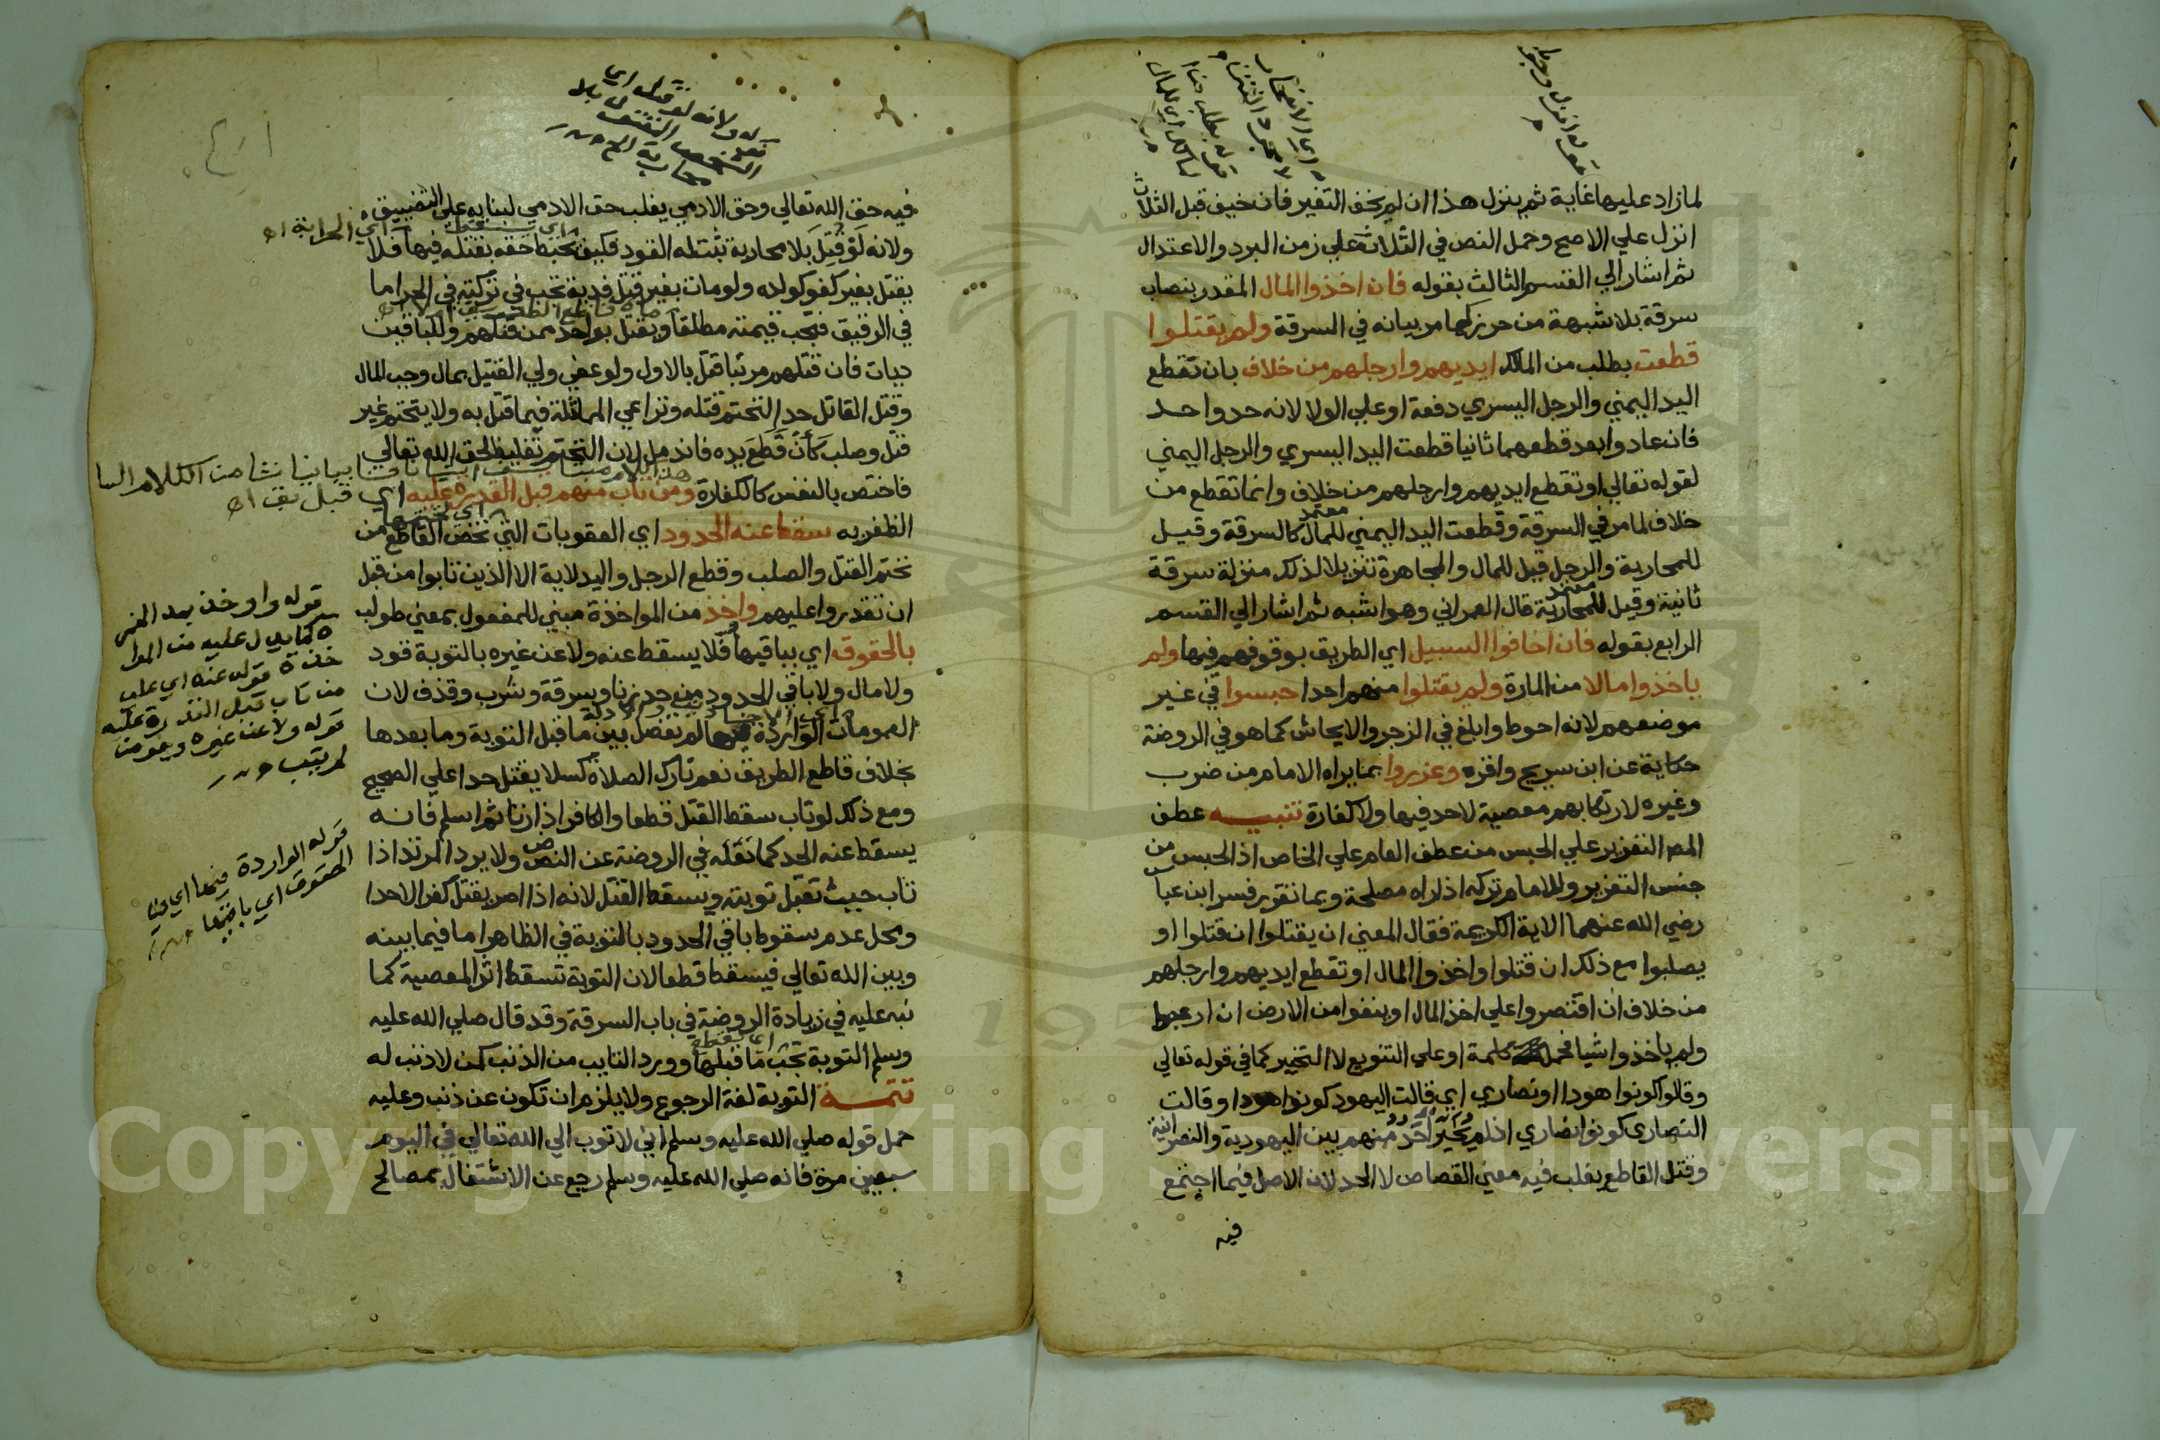 لما زاد عليها غاية ثم ينزل هذا ان لم يخف التغير فان خيف قبل الثلاث
انزل علي الاصح وحمل النص في الثلاثة علي زمن البرد والاعتدال
ثم اشار الي القسم الثالث بقوله فان اخذوا المال المقدر بنصاب
سرقة بلا شبهة من حرز كما مر بيانه في السرقة ولم يقتلوا
قطعت بطلب من المالك ايديهم وارجلهم من خلاف بان تقطع
اليد اليمني والرجل اليسري دفعة او علي الولا لانه حد واحد
فان عادوا بعد قطعهما ثانيا قطعت اليد اليسري والرجل اليمني
لقوله تعالي او تقطع ايديهم وارجلهم من خلاف وانما تقطع من
خلاف لما مر في السرقة وقطعت اليد اليمني للمال كالسرقة وقيل
معتمد
للمحاربة والرجل قيل للمال والمجاهرة تنزيلا لذلك منزلة سرقة
ثانية وقيل للمحاربة قال العمراني وهو اشبه ثم اشار الي القسم
معتمد
الرابع بقوله فان اخافوا السبيل اي الطريق بوقوفهم فيها ولم
ياخذوا مالا من المارة ولم يقتلوا منهم احدا حبسوا في غير
موضعهم لانه احوط وابلغ في الزجر والايحاش كما هو في الروضة
حكاية عن ابن سريج واقره وعزروا بما يراه الامام من ضرب
وغيره لارتكابهم معصية لا حد فيها ولا كفارة تنبيه عطف
المص التعزير علي الحبس من عطف العام علي الخاص اذ الحبس من
جنس التعزير وللامام تركه اذا راه مصلحة وبما تقرر فسر ابن عباس
رضي الله عنهما الاية الكريمة فقال المعني ان يقتلوا ان قتلوا او
يصلبوا مع ذلك ان قتلوا واخذوا المال او تقطع ايديهم وارجلهم
من خلاف ان اقتصروا علي اخذ المال او ينفوا من الارض ان ارعبوا
ولم ياخذوا شيا فحمل كلمة او علي التنويع لا التخيير كما في قوله تعالي
وقالوا كونوا هودا او نصاري اي قالت اليهود كونوا هودا وقالت
النصاري كونوا نصاري اذ لم يخير احد منهم بين اليهودية والنصرانية
وقتل القاطع يغلب فيه معني القصاص لا الحد لان الاصل فيما اجتمع
فيه
فيه حق الله تعالي وحق الادمي يغلب حق الادمي لبنايه علي التضييق
ولانه لو قتل بلا محاربة ثبت له القود فكيف يحبط حقه بقتله فيها فلا
يقتل بغير كفو كولده ولو مات بغير قتل فدية تجب في تركته في الحر اما
في الرقيق فتجب قيمته مطلقا ويقتل بواحد ممن قتلهم وللباقين
ديات فان قتلهم مرتبا قتل بالاول ولو عفي ولي القتيل بمال وجب المال
وقتل القاتل حدا لتحتم قتله وتراعي المماثلة فيما قتل به ولا يتحتم غير
قتل وصلب كأن قطع يده فاندمل لان التحتم تغليظ لحق الله تعالي
فاختص بالنفس كالكفارة ومن تاب منهم قبل القدرة عليه اي قبل
الظفر به سقط عنه الحدود اي العقوبات التي تخص القاطع من
تحتم القتل والصلب وقطع الرجل واليد لاية الا الذين تابوا من قبل
ان تقدروا عليهم واخذ من المواخذة مبني للمفعول بمعني طولب
بالحقوق اي بباقيها فلا يسقط عنه ولا عن غيره بالتوبة قود
ولا مال ولا باقي الحدود من حد زنا وسرقة وشرب وقذف لان
العمومات الواردة فيها لم تفصل بين ما قبل التوبة وما بعدها
بخلاف قاطع الطريق نعم تارك الصلاة كسلا يقتل حدا علي الصحيح
ومع ذلك لو تاب سقط القتل قطعا والكافر اذا زنا ثم اسلم فانه
يسقط عنه الحد كما نقله في الروضة عن النص ولا يرد المرتد اذا
تاب حيث تقبل توبته ويسقط القتل لانه اذا اصر يقتل كفرا لا حدا
ومحل عدم سقوط باقي الحدود بالتوبة في الظاهر اما فيما بينه
وبين الله تعالي فيسقط قطعا لان التوبة تسقط اثر المعصية كما
نبه عليه في زيادة الروضة في باب السرقة وقد قال صلي الله عليه
وسلم التوبة تجب ما قبلها وورد التايب من الذنب كمن لا ذنب له
اي تقطع
تتمة التوبة لغة الرجوع ولا يلزم ان تكون عن ذنب وعليه
حمل قوله صلي الله عليه وسلم اني لاتوب الي الله تعالي في اليوم
سبعين مرة فانه صلي الله عليه وسلم رجع عن الاشتغال بمصالح
قوله انزل وجوبا
قوله واوخذ
كما يدل عليه من الموا
خذة قوله عنه اي علي
من تاب قبل القدرة عليه
قوله ولا عن غيره وهو من
لم يتب
قوله الواردة فيها اي في
الحقوق اي باقيها
Copyright © King Saud University